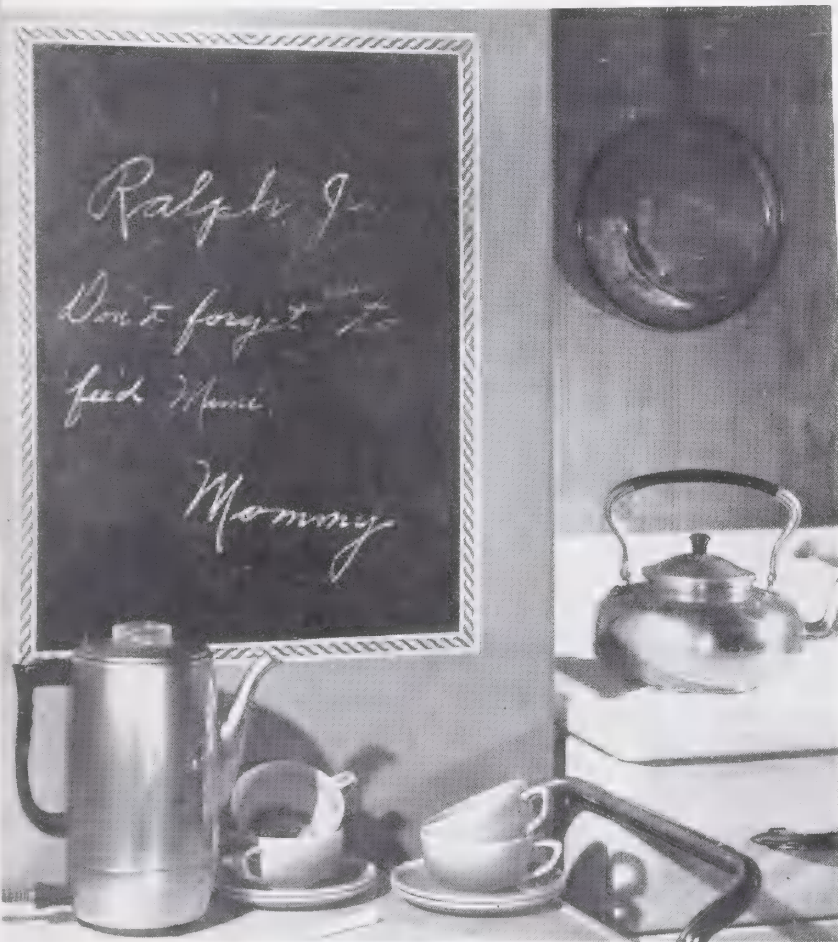 Ralph Jr.
Don't forget to
feed Mimi.
Mommy